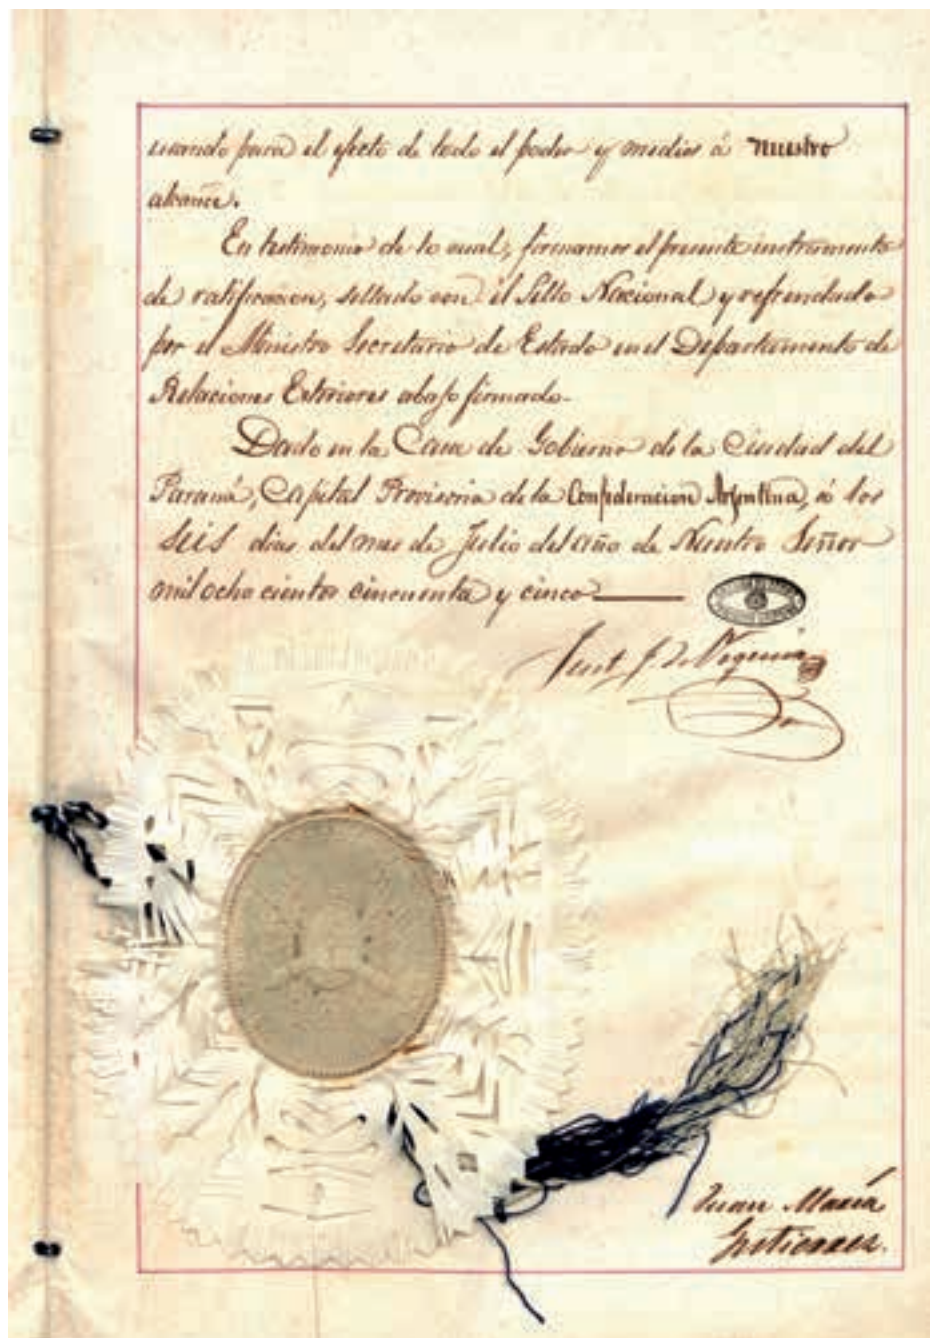 usando para el efecto de todo el poder y medios á nuestro
alcance.
En testimonio de lo cual, firmamos el presente instrumento
de ratificacion, sellado con el Sello Nacional y refrendado
por el Ministro Secretario de Estado en el Departamento de
Relaciones Exteriores abajo firmado.
Dado en la Casa de Gobierno de la Ciudad del
Paraná, Capital Provisoria de la Confederacion Argentina, á los
seis dias del mes de Julio del año de Nuestro Señor
mil ocho cientos cincuenta y cinco
Juan María
Gutierrez.